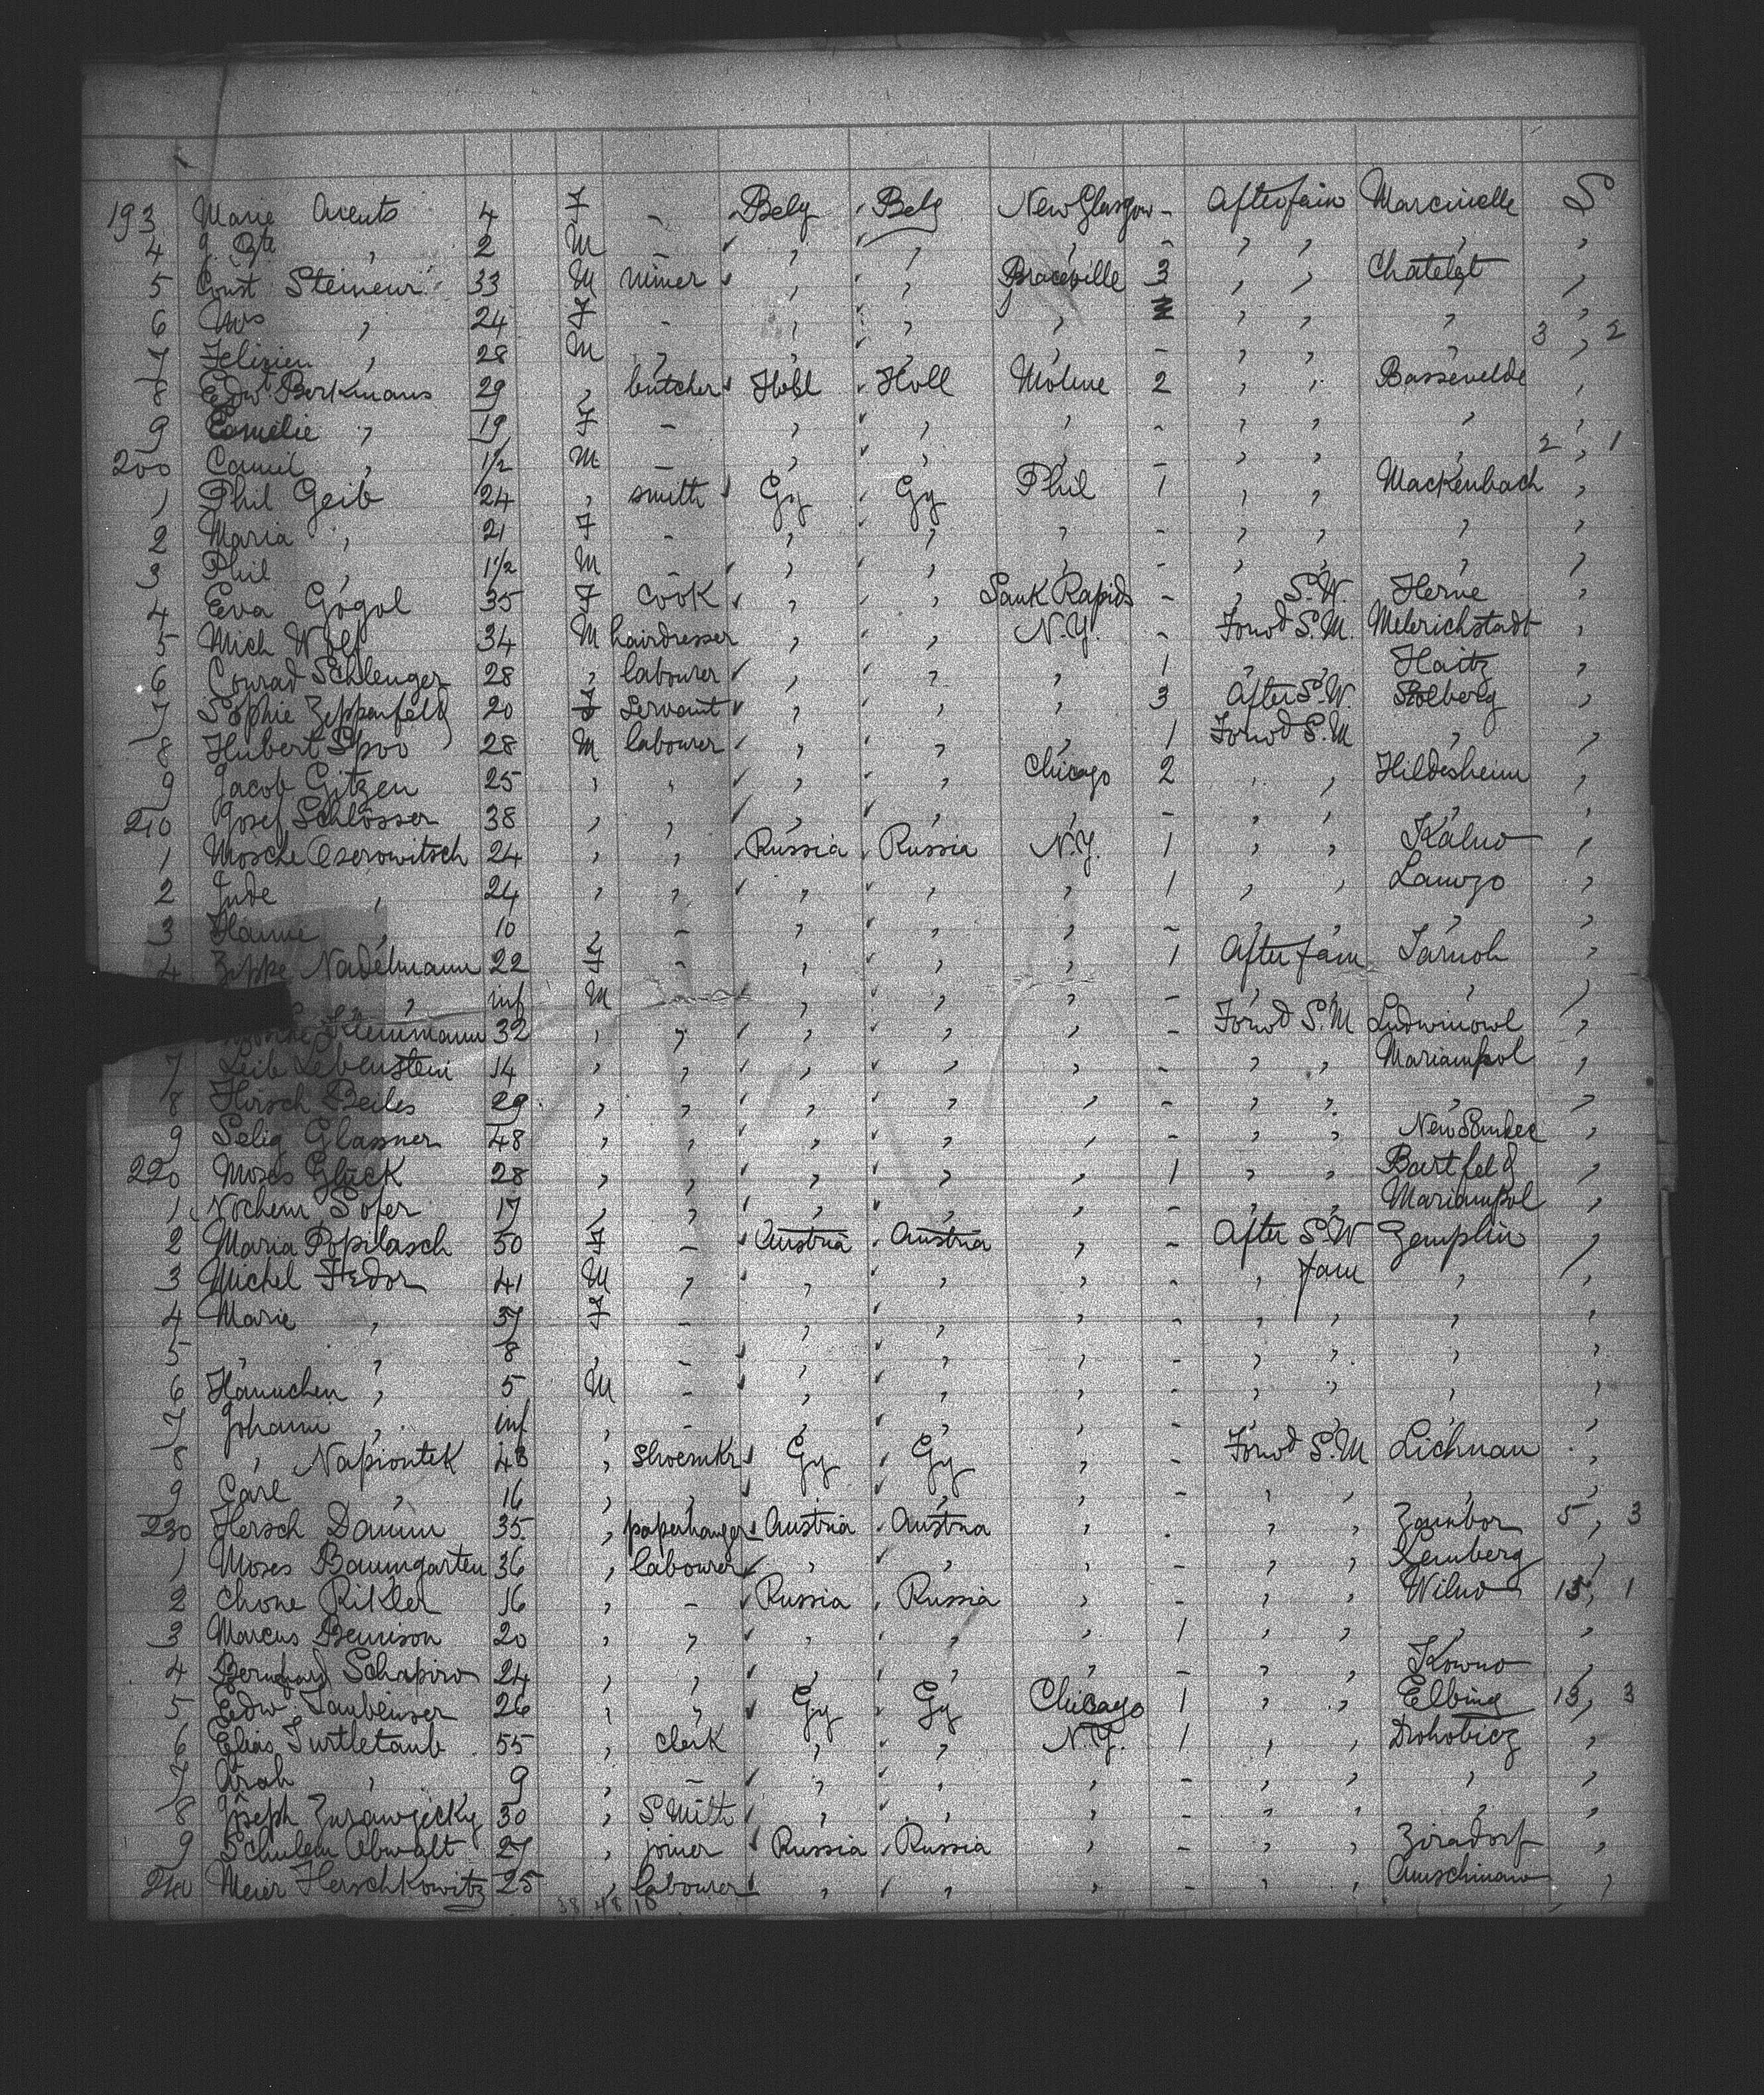 193 Marie Arents 4 F - Belg Belg New Glasgow - After fam Marcinelle S
4 J. Bte " 2 M - " " " - " " " "
5 Const Steineur 33 M miner " " Braceville 3 " " Chatelet "
6 Mrs " 24 F - " " " 2 " " " "
7 Felizien " 28 M " " " " - " " " 3 " 2
8 Edw Berkmans 29 " butcher Holl Holl Moline 2 " " Bassevelde "
9 Eamelie " 19 F - " " " - " " " "
200 Camil " 1/2 M - " " " - " " " 2 " 1
1 Phil Geib 24 " smith Gy Gy Phil 1 " " Mackenbach "
2 Maria " 21 F - " " " - " " " "
3 Phil " 1 1/2 M - " " " - " " " "
4 Eva Gogol 35 F cook " " Sauk Rapids - " S.W. Herne "
5 Mich Wolf 34 M hairdresser " " N.Y. - Forwd S.M. Melrichstadt "
6 Conrad Schlenger 28 " labourer " " " 1 " " Haitz "
7 Sophie Zeppenfeld 20 F Servant " " " 3 After S.W. Stolberg "
8 Hubert Spoo 28 M labourer " " " 1 Forwd S.M " "
9 Jacob Gitzen 25 " " " " Chicago 2 " " Hildesheim "
210 Josef Schlösser 38 " " " " " - " " " "
1 Mosche Oserowitsch 24 " " Russia Russia N.Y. 1 " " Kalno "
2 Jude " 24 " " " " " 1 " " Lawzo "
3 Hanne " 10 " - " " " - " " " "
4 Zippe Nadelmann 22 F - " " " 1 After fam Tarnoh "
" inf M " " " - " " " "
Mosche Kleinmann 32 " " " " " - Forwd S.M Ludwinowl "
7 Leib Lebenstein 14 " " " " " - " " Mariampol "
8 Hirsch Beiles 29 " " " " " - " " " "
9 Selig Glassner 48 " " " " " - " " New "
220 Moses Glück 28 " " " " " 1 " " Bartfeld "
1 Nochem Sofer 17 " " " " " - " " Mariampol "
2 Maria Popilasch 50 F - Austria Austria " - After S.W Zemplin "
3 Michel Fedor 41 M " " " " - " fam " "
4 Marie " 37 F - " " " - " " " "
5 " " 8 " - " " " - " " " "
6 Hannchen " 5 M - " " " - " " " "
7 Johann " inf " - " " " - " " " "
8 " Napiontek 43 " Shoemkr Gy Gy " - Forwd S.M Lichnau "
9 Carl " 16 " " " " " - " " " "
230 Hersch Damm 35 " paperhanger Austria Austria " - " " Zambor 5 " 3
1 Moses Baumgarten 36 " labourer " " " - " " Lemberg "
2 Chone Rikler 16 " - Russia Russia " - " " Wilno 15 " 1
3 Marcus Bennison 20 " " " " " 1 " " " "
4 Bernhard Schapiro 24 " " " " " - " " Kowno "
5 Edw Taubenser 26 " " Gy Gy Chicago 1 " " Elbing 13 " 3
6 Elias Turtletaub 55 " clerk " " N.Y. 1 " " Drohobicz "
7 Arah " 9 " - " " " - " " " "
8 Joseph Zurawzicky 30 " Smith " " " - " " " "
9 Schulem Abwalt 27 " joiner Russia Russia " - " " Ziradorf "
240 Meier Herschkowitz 25 " labourer " " " - " " Amschinow "
38 48 18